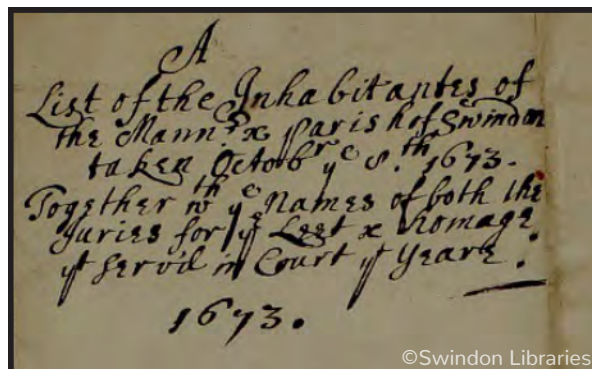 A
List of the Inhabitantes of
the Mann.r & Parish of Swindon
taken Octobr ye 8.th 1673.
Together wth ye Names of both the
Juries for ye Leet & Homage
yt Serv'd in Court yt Yeare.
1673.
©Swindon Libraries